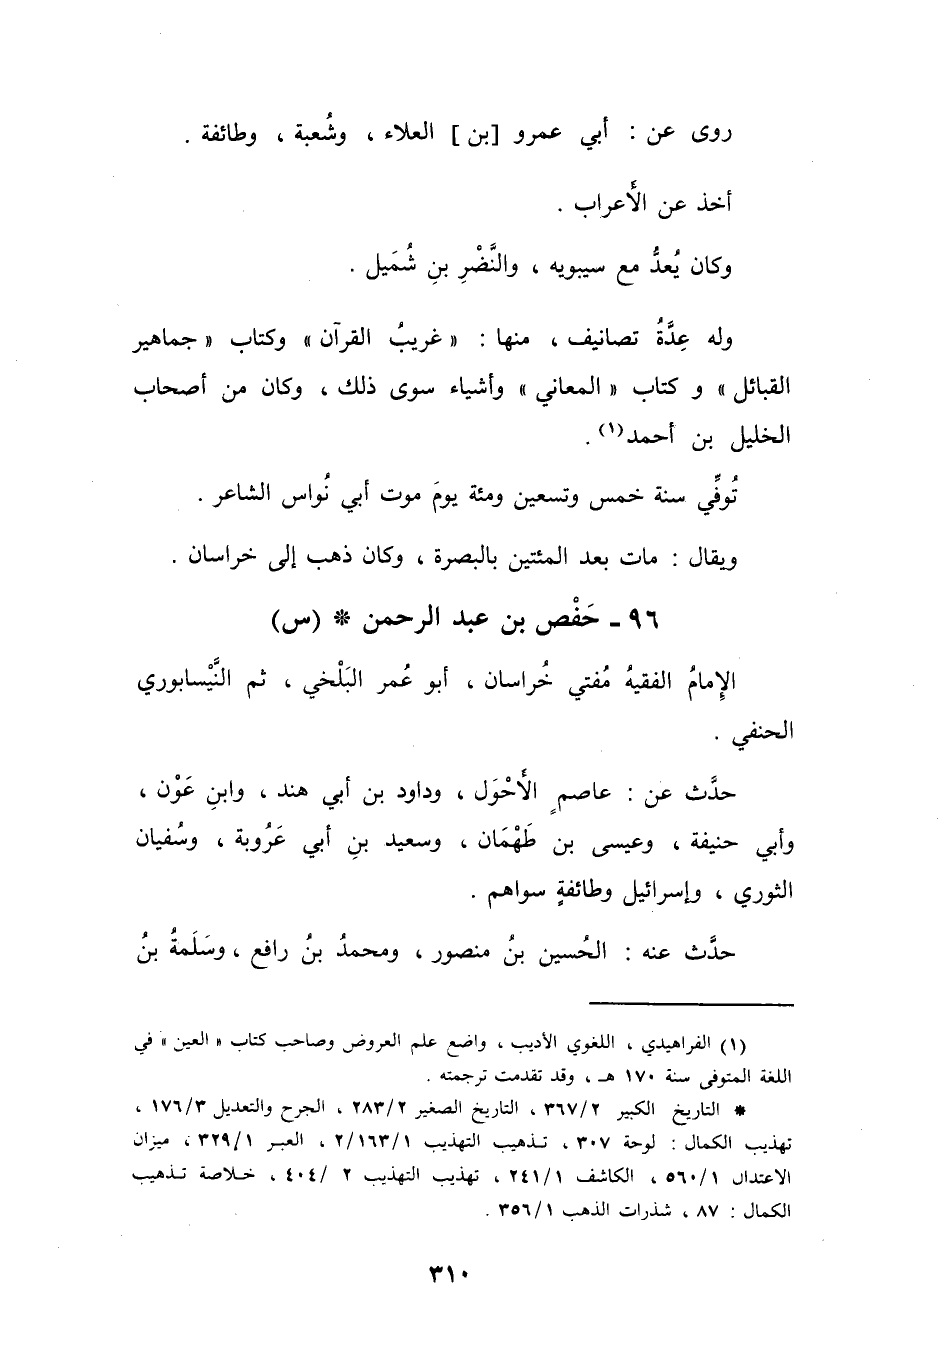 روى عن : أبي عمرو [بن ] العلاء ، وشُعبة ، وطائفة .
أخذ عن الأَعراب .
وكان يُعدُّ مع سيبويه ، والنَّضْرِ بنِ شُمَيل .
وله عِدَّةُ تصانيف ، منها : « غريبُ القرآن » وكتاب « جماهير
القبائل » و كتاب « المعاني » وأشياء سوى ذلك ، وكان من أصحاب
الخليل بن أحمد(١) .
تُوفِّي سنة خمس وتسعين ومئة يومَ موت أبي نُواس الشاعر .
ويقال : مات بعد المئتين بالبصرة ، وكان ذهب إلى خراسان .
٩٦ ـ حَفْص بن عبد الرحمن * (س)
الإِمامُ الفقيهُ مُفتي خُراسان ، أبو عُمر البَلْخي ، ثم النَّيْسابوري
الحنفي .
حدَّث عن : عاصمٍ الأَحْوَل ، وداود بن أبي هند ، وابنِ عَوْن ،
وأبي حنيفة ، وعيسى بن طَهْمَان ، وسعيد بنِ أبي عَرُوبة ، وسُفيان
الثوري ، وإسرائيل وطائفةٍ سواهم .
حدَّث عنه : الحُسين بنُ منصور ، ومحمدُ بنُ رافع ، وسَلَمةُ بنُ
(١) الفراهيدي ، اللغوي الأديب ، واضع علم العروض وصاحب كتاب « العين » في
اللغة المتوفى سنة ١٧٠ هـ ، وقد تقدمت ترجمته .
* التاريخ الكبير ٣٦٧/٢ ، التاريخ الصغير ٢٨٣/٢ ، الجرح والتعديل ١٧٦/٣ ،
تهذيب الكمال : لوحة ٣٠٧ ، تذهيب التهذيب ٢/١٦٣/١ ، العبر ٣٢٩/١ ، ميزان
الاعتدال ٥٦٠/١ ، الكاشف ٢٤١/١ ، تهذيب التهذيب ٢ /٤٠٤ ، خلاصة تذهيب
الكمال : ٨٧ ، شذرات الذهب ٣٥٦/١ .
٣١٠